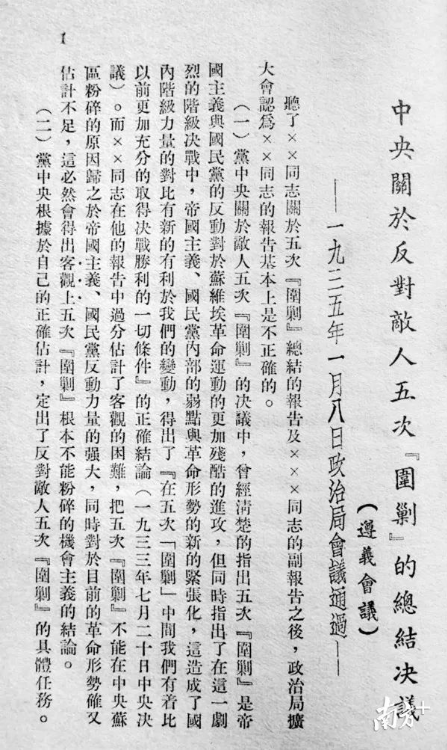 中央關於反對敵人五次『圍剿』的總結决議
（遵義會議）
——一九三五年一月八日政治局會議通過——
聽了××同志關於五次『圍剿』總結的報告及×××同志的副報告之後，政治局擴
大會認爲××同志的報告基本上是不正確的。
（一）黨中央關於敵人五次『圍剿』的决議中，曾經清楚的指出五次『圍剿』是帝
國主義與國民黨的反動對於蘇維埃革命運動的更加殘酷的進攻，但同時指出了在這一劇
烈的階級决戰中，帝國主義、國民黨內部的弱點與革命形勢的新的緊張化，這造成了國
內階級力量的對比有新的有利於我們的變動，得出了『在五次「圍剿」中間我們有着比
以前更加充分的取得决戰勝利的一切條件』的正確結論（一九三三年七月二十日中央决
議）。而××同志在他的報告中過分估計了客觀的困難，把五次『圍剿』不能在中央蘇
區粉碎的原因歸之於帝國主義、國民黨反動力量的强大，同時對於目前的革命形勢確又
估計不足，這必然會得出客觀上五次『圍剿』根本不能粉碎的機會主義的結論。
（二）黨中央根據於自己的正確估計，定出了反對敵人五次『圍剿』的具體任務。
1
南方+